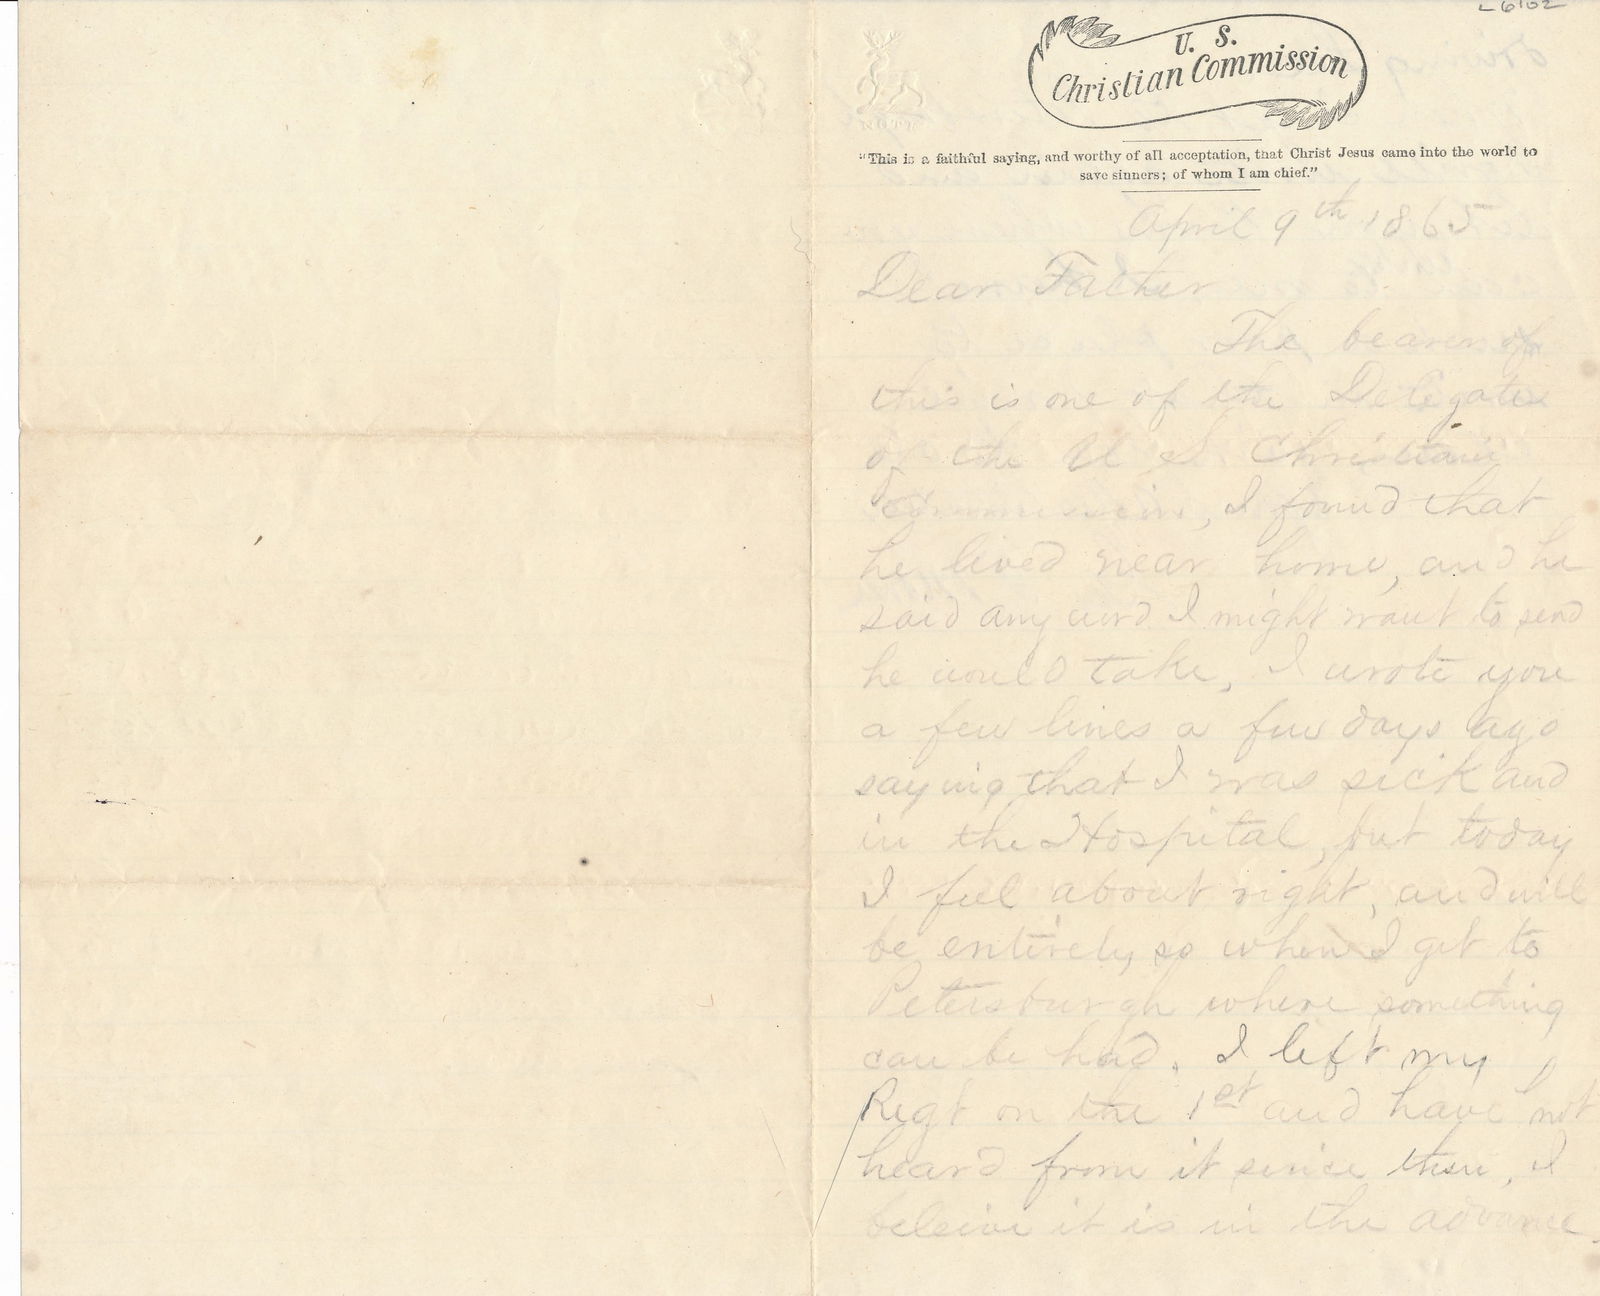 L6102
U. S.
Christian Commission
"This is a faithful saying, and worthy of all acceptation, that Christ Jesus came into the world to
save sinners; of whom I am chief."
April 9th 1865
Dear Father
The bearer of
this is one of the Delegates
of the U S Christian
Commission, I found that
he lived near home, and he
said any word I might want to send
he would take, I wrote you
a few lines a few days ago
saying that I was sick and
in the Hospital, but today
I feel about right, and will
be entirely so when I get to
Petersburgh where something
can be had. I left my
Regt on the 1st and have not
heard from it since then, I
beleive it is in the advance.